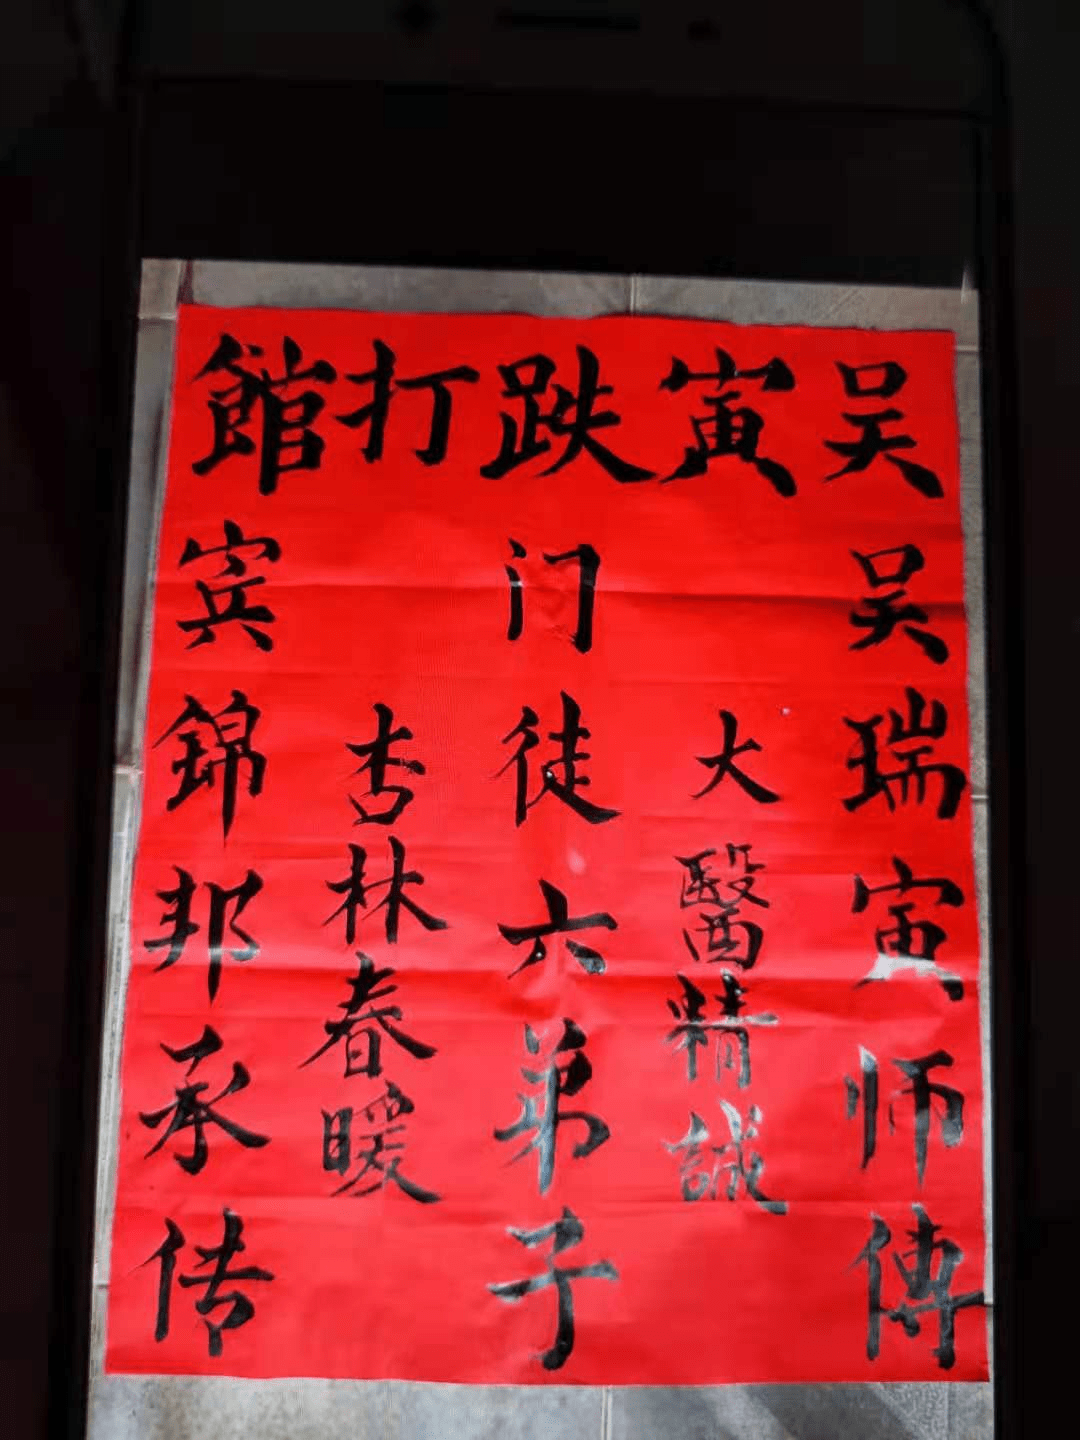 吴寅跌打館
吴瑞寅师傅
大醫精誠
门徒六弟子
杏林春暖
宾錦邦承传